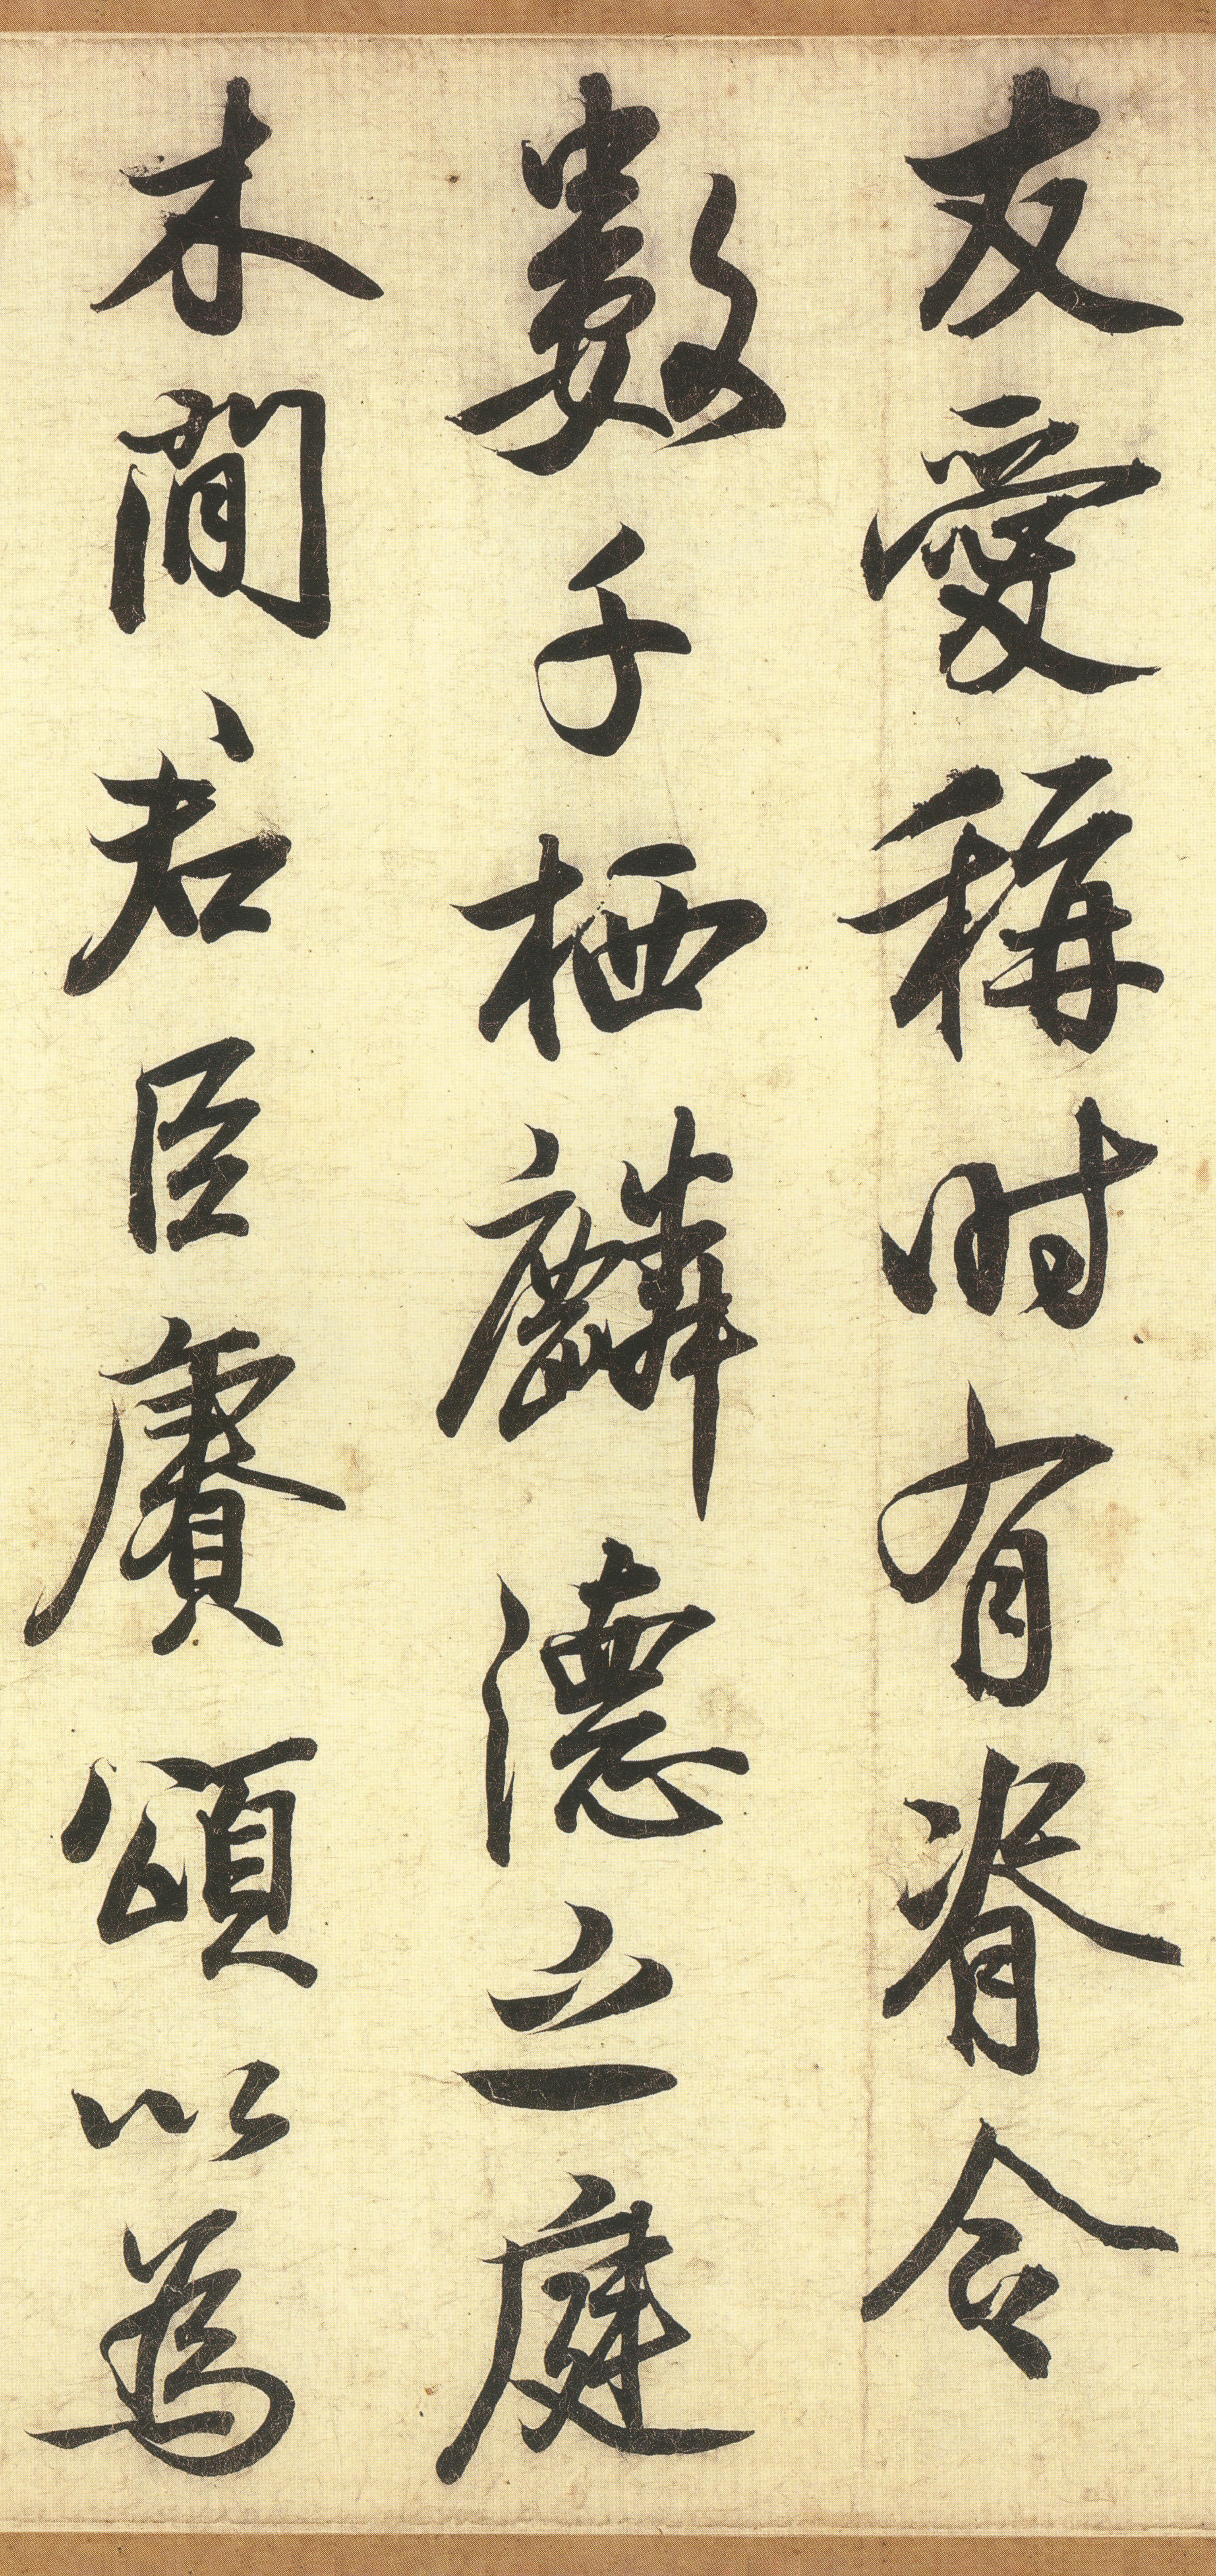 友愛稱時有脊令
數千栖麟德之庭
木間君臣賡頌以為